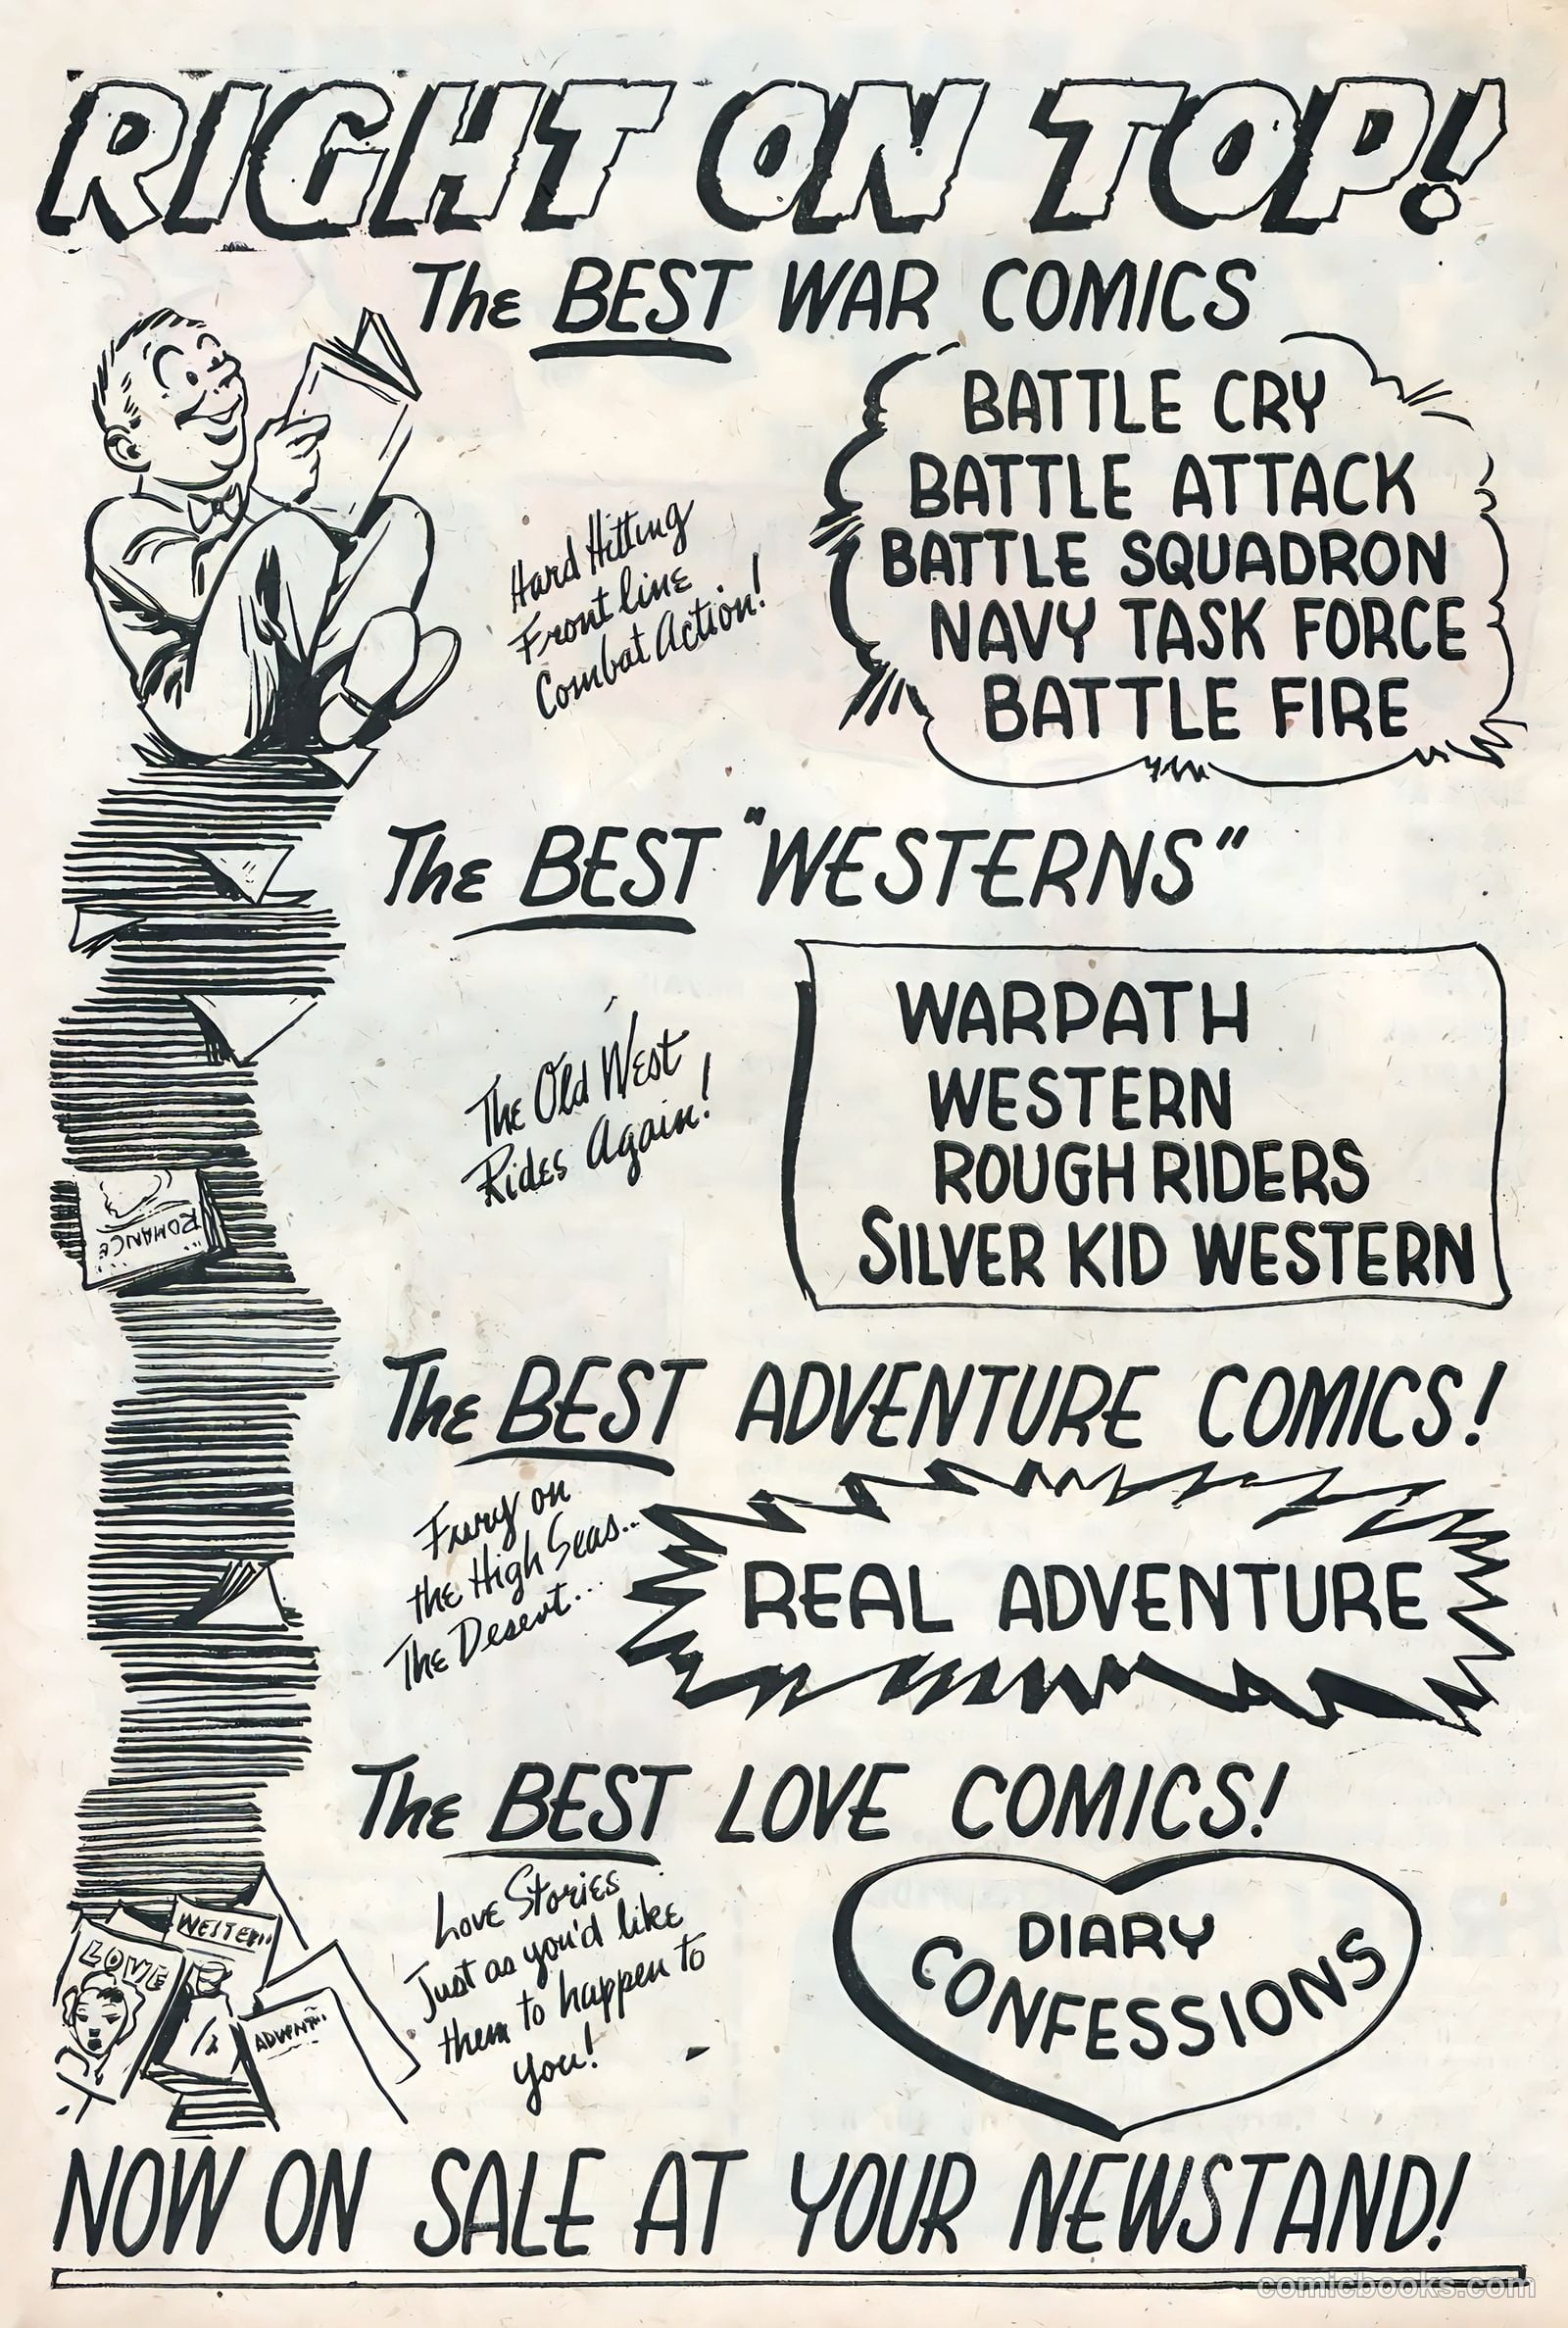 RIGHT ON TOP!
The BEST WAR COMICS
Hard Hitting
Front line
Combat Action!
BATTLE CRY
BATTLE ATTACK
BATTLE SQUADRON
NAVY TASK FORCE
BATTLE FIRE
The BEST "WESTERNS"
The Old West
Rides Again!
WARPATH
WESTERN
ROUGH RIDERS
SILVER KID WESTERN
ROMANCE
The BEST ADVENTURE COMICS!
Fury on
the High Seas...
The Desert...
REAL ADVENTURE
The BEST LOVE COMICS!
Love Stories
Just as you'd like
them to happen to
you!
DIARY
CONFESSIONS
WESTERN
LOVE
NOW ON SALE AT YOUR NEWSTAND!
comicbooks.com